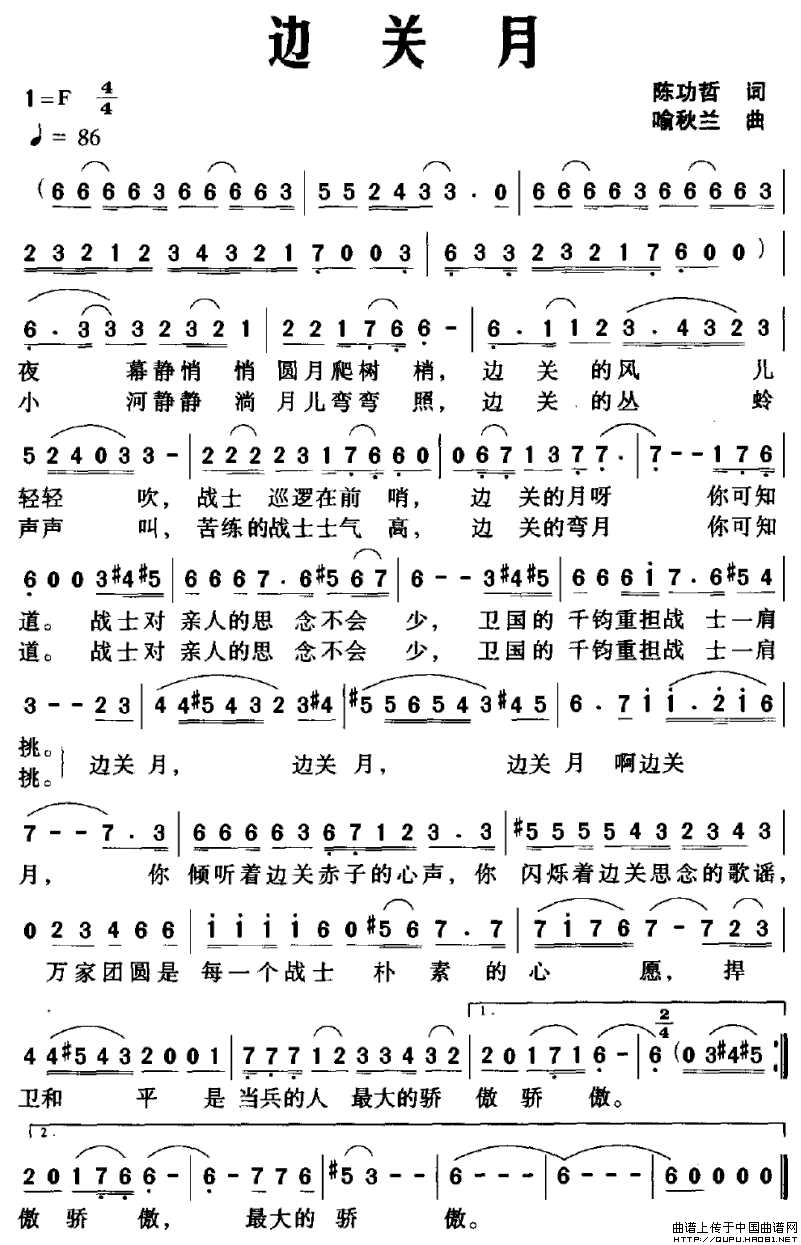 边关月
1=F 4/4
♩=86
陈功哲 词
喻秋兰 曲
(666636 6663 | 55243 3.0 | 666636 6663
23212343217003 | 633232176 00)
6.333232321 | 221766- | 6.1123.4323
夜 幕静悄 悄 圆月爬树 梢， 边 关 的风 儿
小 河静静 淌 月儿弯弯 照， 边 关 的丛 蛉
524033- | 22223176 60 | 0671377. | 7--176
轻轻 吹，战士 巡逻在前 哨， 边 关的月呀 你可知
声声 叫，苦练的战士士气 高， 边 关的弯月 你可知
6003#4#5 | 6667.6#567 | 6--3#4#5 | 66617.6#54
道。 战士对 亲人的思 念不会 少， 卫国的 千钧重担战 士一肩
道。 战士对 亲人的思 念不会 少， 卫国的 千钧重担战 士一肩
3--23 | 44#54323#4 | #556543#45 | 6.711.216
挑。
挑。
边关 月， 边关 月， 边关 月 啊边关
7--7.3 | 6666367123.3 | #55555432343
月， 你 倾听着边关赤子的心声，你 闪烁着边关思念的歌谣，
023466 | 111160#567.7 | 71767-723
万家团圆是 每一个战士 朴 素 的 心 愿， 捍
44#5432001 | 7771233432 | 1. 201716- | 2/4 6(03#4#5 :||
卫和 平 是 当兵的人 最大的骄 傲 骄 傲。
2. 201766- | 6-776 | #53-- | 6--- | 6--- | 60000 ||
傲 骄 傲， 最大的 骄 傲。
曲谱上传于中国曲谱网
HTTP://QUPU.HAO81.NET